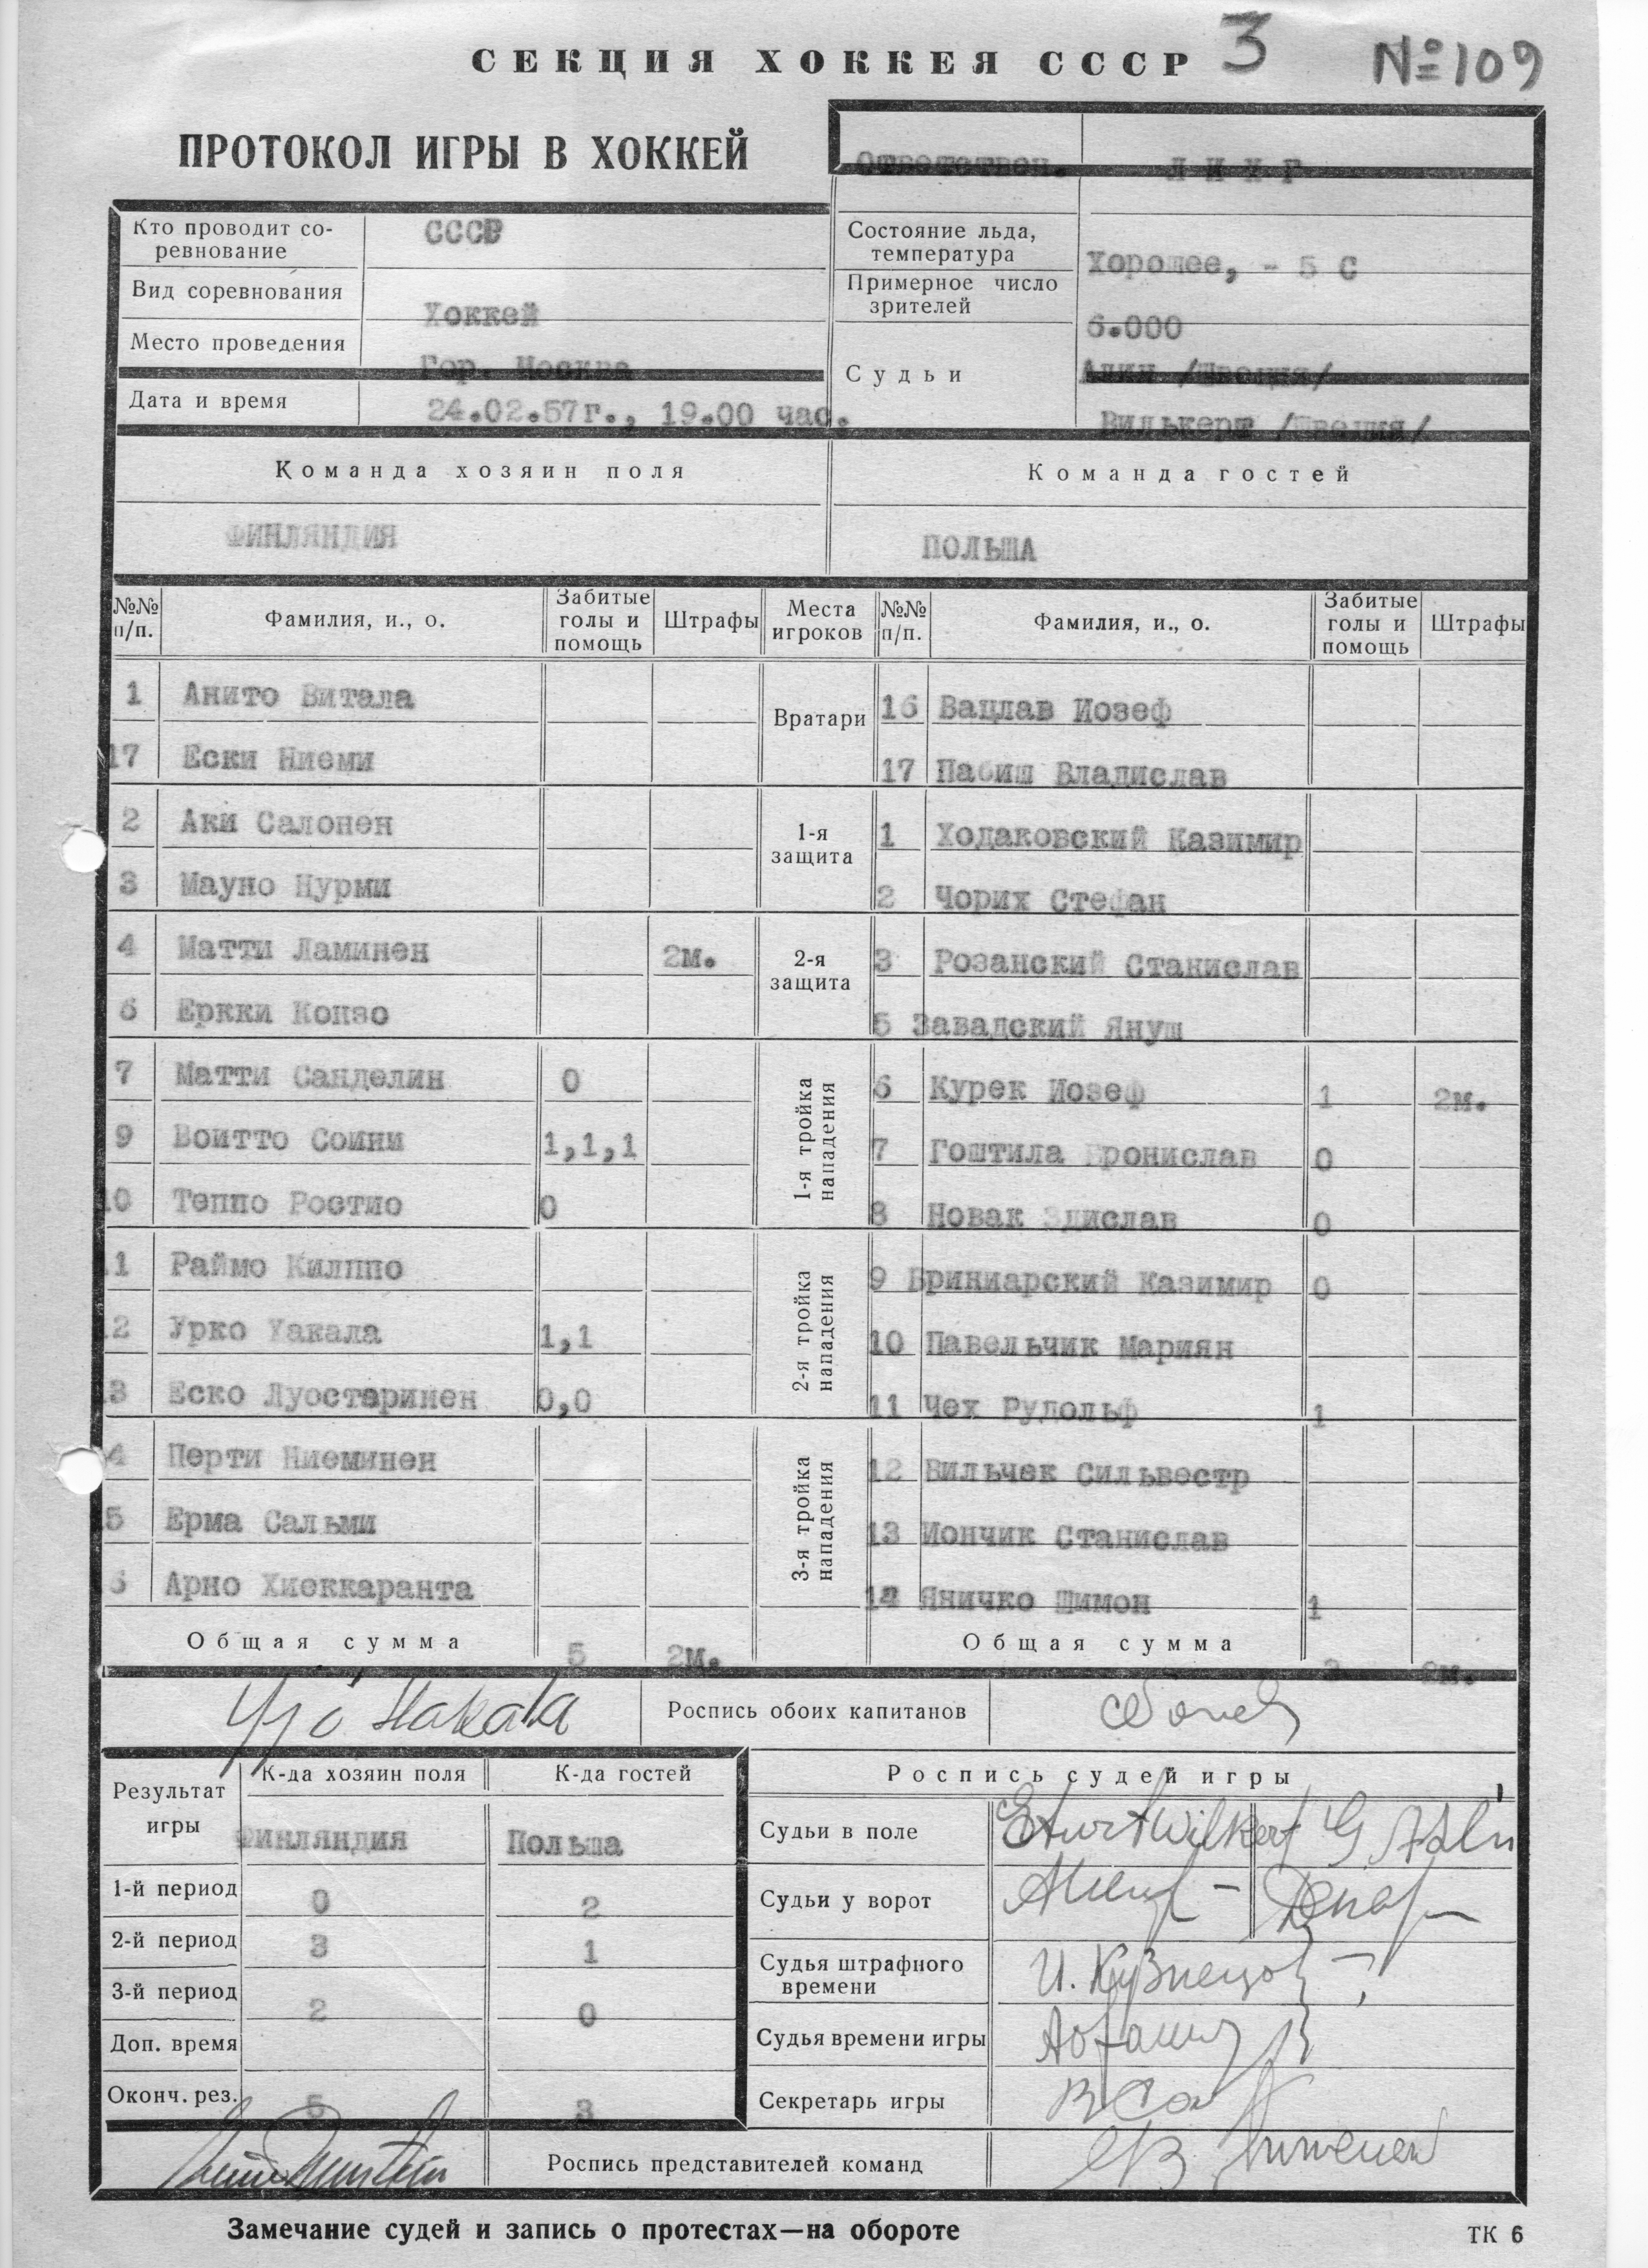 СЕКЦИЯ ХОККЕЯ СССР 3 №109
ПРОТОКОЛ ИГРЫ В ХОККЕЙ
Ответствен. ЛИХГ
Кто проводит соревнование СССР
Состояние льда, температура Хорошее, - 5 С
Вид соревнования Хоккей
Примерное число зрителей 6.000
Место проведения Гор. Москва
Судьи Алин /Швеция/
Дата и время 24.02.57г., 19.00 час.
Вилькерт /Швеция/
Команда хозяин поля Команда гостей
ФИНЛЯНДИЯ ПОЛЬША
№№ п/п. Фамилия, и., о. Забитые голы и помощь Штрафы Места игроков №№ п/п. Фамилия, и., о. Забитые голы и помощь Штрафы
1 Анито Витала Вратари 16 Вацлав Иозеф
17 Ески Ниеми 17 Пабиш Владислав
2 Аки Салонен 1-я защита 1 Ходаковский Казимир
3 Мауно Нурми 2 Чорих Стефан
4 Матти Ламинен 2м. 2-я защита 3 Розанский Станислав
6 Еркки Конзо 5 Завадский Януш
7 Матти Санделин 0 1-я тройка нападения 6 Курек Иозеф 1 2м.
9 Воитто Соини 1,1,1 7 Гоштила Бронислав 0
10 Теппо Ростио 0 8 Новак Здислав 0
11 Раймо Килппо 2-я тройка нападения 9 Бриниарский Казимир 0
12 Урко Хакала 1,1 10 Павельчик Мариян
13 Еско Луостаринен 0,0 11 Чех Рудольф 1
4 Перти Ниеминен 3-я тройка нападения 12 Вильчек Сильвестр
5 Ерма Сальми 13 Иончик Станислав
6 Арно Хиеккаранта 14 Яничко Шимон 1
Общая сумма 5 2м. Общая сумма 3 2м.
Yrjö Hakala Роспись обоих капитанов
Результат игры К-да хозяин поля К-да гостей Роспись судей игры
Финляндия Польша Судьи в поле Kurt Wilkert G. Ahlin
1-й период 0 2 Судьи у ворот
2-й период 3 1 Судья штрафного времени И. Кузнецов
3-й период 2 0 Судья времени игры
Доп. время
Оконч. рез. 5 3 Секретарь игры
Роспись представителей команд
Замечание судей и запись о протестах—на обороте ТК 6